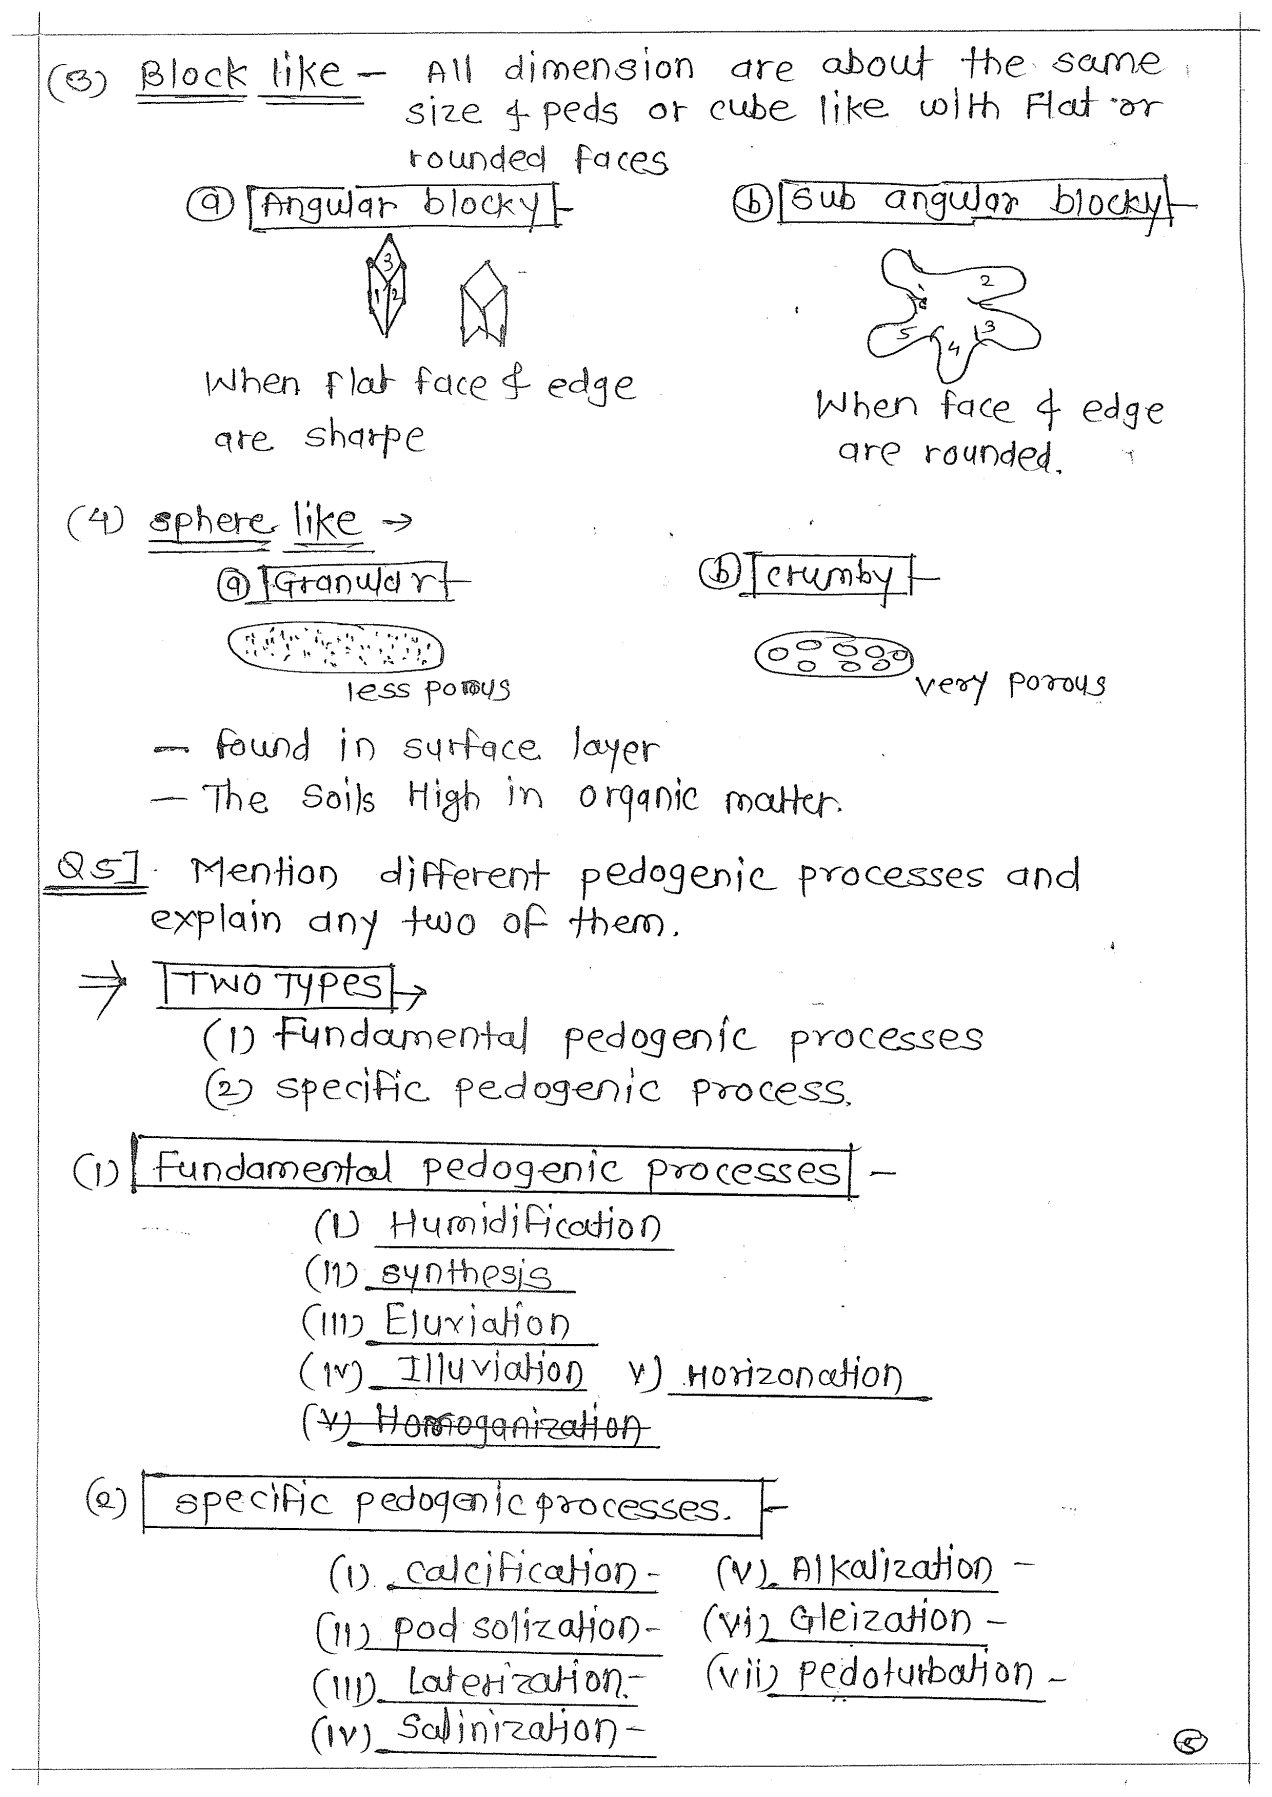 (3) Block like - All dimension are about the same
size & peds or cube like with Flat or
rounded faces
(a) Angular blocky - (b) Sub angular blocky -
3
1 2
2
3
4
5
When flat face & edge
are sharpe
When face & edge
are rounded.
(4) sphere like →
(a) Granular - (b) crumby -
less porous
very porous
- found in surface layer
- The Soils High in organic matter.
Q5]. Mention different pedogenic processes and
explain any two of them.
⇒ TWO TYPES →
(1) Fundamental pedogenic processes
(2) specific pedogenic process.
(1) Fundamental pedogenic processes -
(i) Humidification
(ii) synthesis
(iii) Eluviation
(iv) Illuviation v) Horizonation
(v) Homoganization
(2) specific pedogenic processes. -
(i). calcification - (v). Alkalization -
(ii) pod solization - (vi) Gleization -
(iii) Laterization. - (vii) pedoturbation -
(iv) Salinization -
5